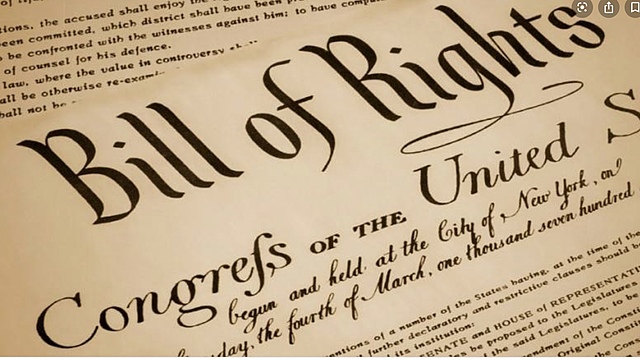 tions, the accused shall enjoy the
been committed, which district shall have been
to be confronted with the witnesses against him; to have
of counsel for his defence.
law, where the value in controversy
all be otherwise
hall not be
Bill of Rights
Congreſs OF THE United S
begun and held at the City of New York, on
day, the fourth of March, one thousand seven hundred
entions of a number of the States having, at the time of the
further declaratory and restrictive clauses should be
its institution:
ENATE and HOUSE of REPRESENTAT
be proposed to the Legislatures
said Legislatures, to be
endment of the Const
riginal Const